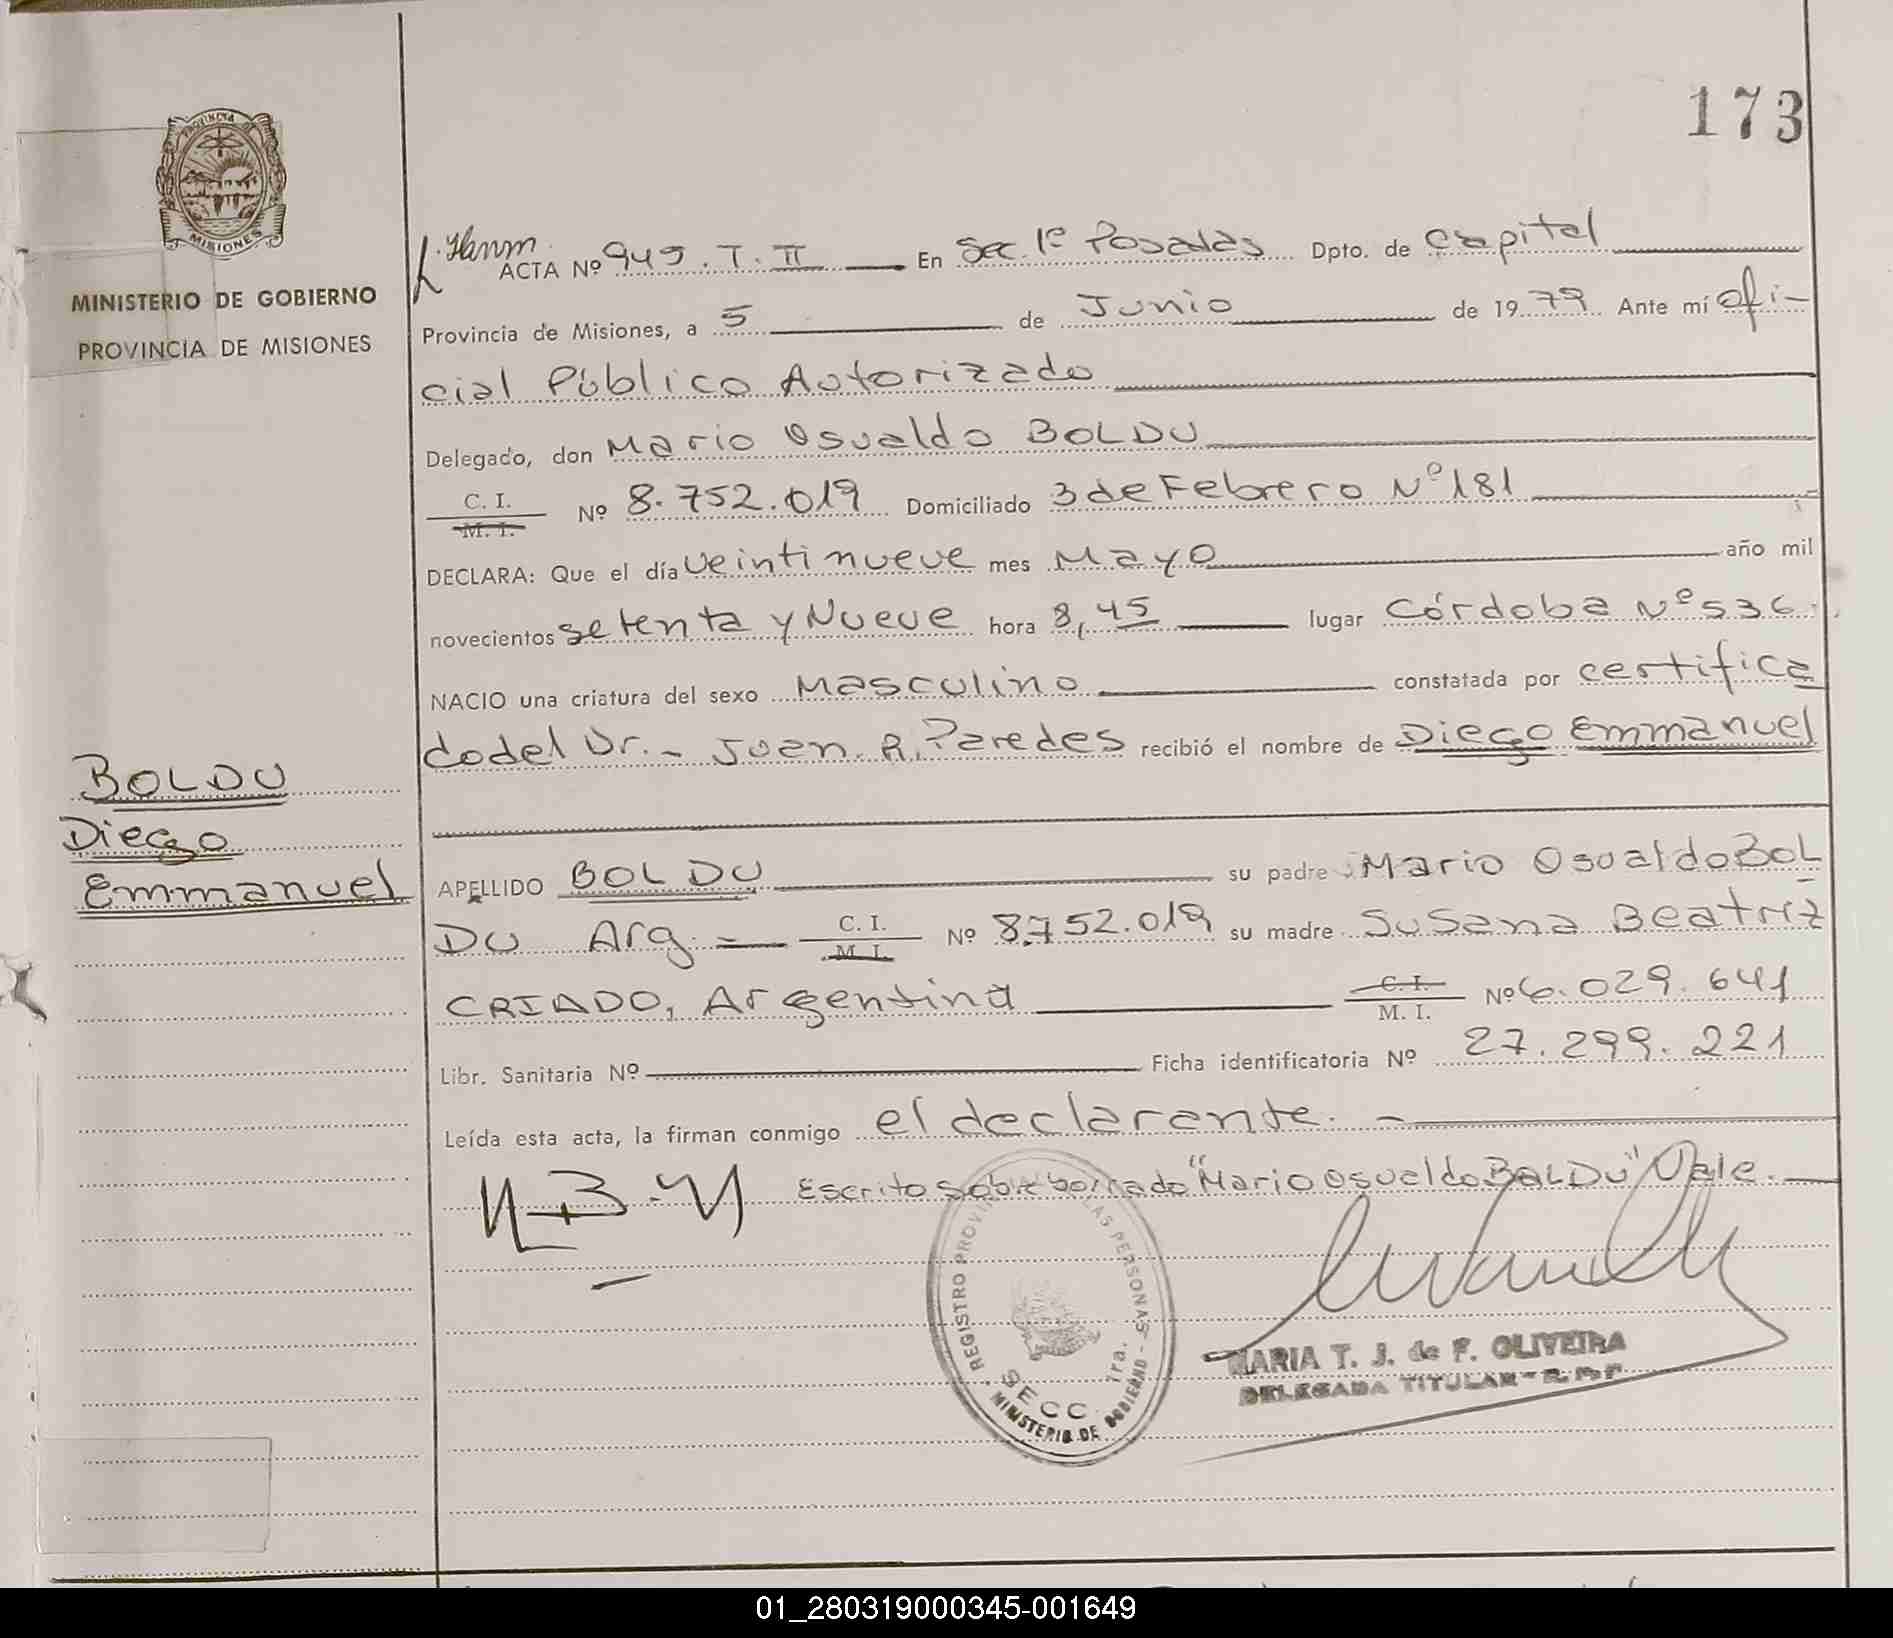 173
PROVINCIA DE
MISIONES
MINISTERIO DE GOBIERNO
PROVINCIA DE MISIONES
BOLDU
Diego
Emmanuel
ACTA Nº 945. T. II En Sec. 1ª Posadas Dpto. de Capital
Provincia de Misiones, a 5 de Junio de 1979. Ante mí ofi-
cial Público Autorizado
Delegado, don Mario Osvaldo BOLDU
C. I.
M. I. Nº 8.752.019 Domiciliado 3 de Febrero Nº 181
DECLARA: Que el día veintinueve mes Mayo año mil
novecientos setenta y Nueve hora 8,45 lugar Córdoba Nº 536.
NACIO una criatura del sexo Masculino constatada por certifica
do del Dr. - Juan. R. Paredes recibió el nombre de Diego Emmanuel
APELLIDO BOLDU su padre Mario Osvaldo BOL
DU Arg. C. I.
M. I. Nº 8.752.019 su madre Susana Beatriz
CRIADO, Argentina C. I.
M. I. Nº 6.029.641
Libr. Sanitaria Nº Ficha identificatoria Nº 27.299.221
Leída esta acta, la firman conmigo el declarante. -
Escrito sobre borrado "Mario Osvaldo BOLDU" Vale.
REGISTRO PROVIN LAS PERSONAS
SECC. 1ra.
MINISTERIO DE GOBIERNO
MARIA T. J. de F. OLIVEIRA
DELEGADA TITULAR - R. P. P.
01_280319000345-001649